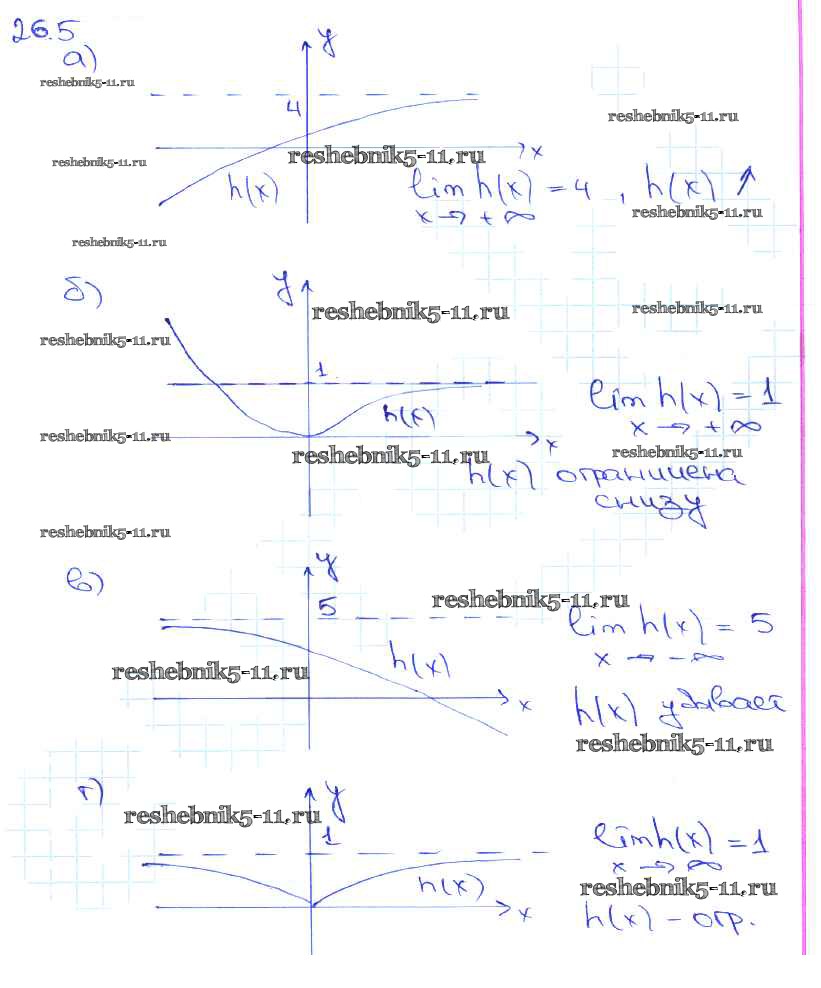 26.5
а)
y
reshebnik5-11.ru
4
reshebnik5-11.ru
reshebnik5-11.ru
reshebnik5-11.ru
x
h(x)
lim h(x) = 4 , h(x) ↑
x → + ∞
reshebnik5-11.ru
reshebnik5-11.ru
б)
y
reshebnik5-11.ru
reshebnik5-11.ru
reshebnik5-11.ru
1
h(x)
lim h(x) = 1
x → + ∞
reshebnik5-11.ru
x
reshebnik5-11.ru
reshebnik5-11.ru
h(x) ограничена
снизу
reshebnik5-11.ru
в)
y
5
reshebnik5-11.ru
lim h(x) = 5
x → - ∞
h(x)
reshebnik5-11.ru
x
h(x) убывает
reshebnik5-11.ru
г)
y
reshebnik5-11.ru
1
lim h(x) = 1
x → ∞
h(x)
reshebnik5-11.ru
x
h(x) - огр.